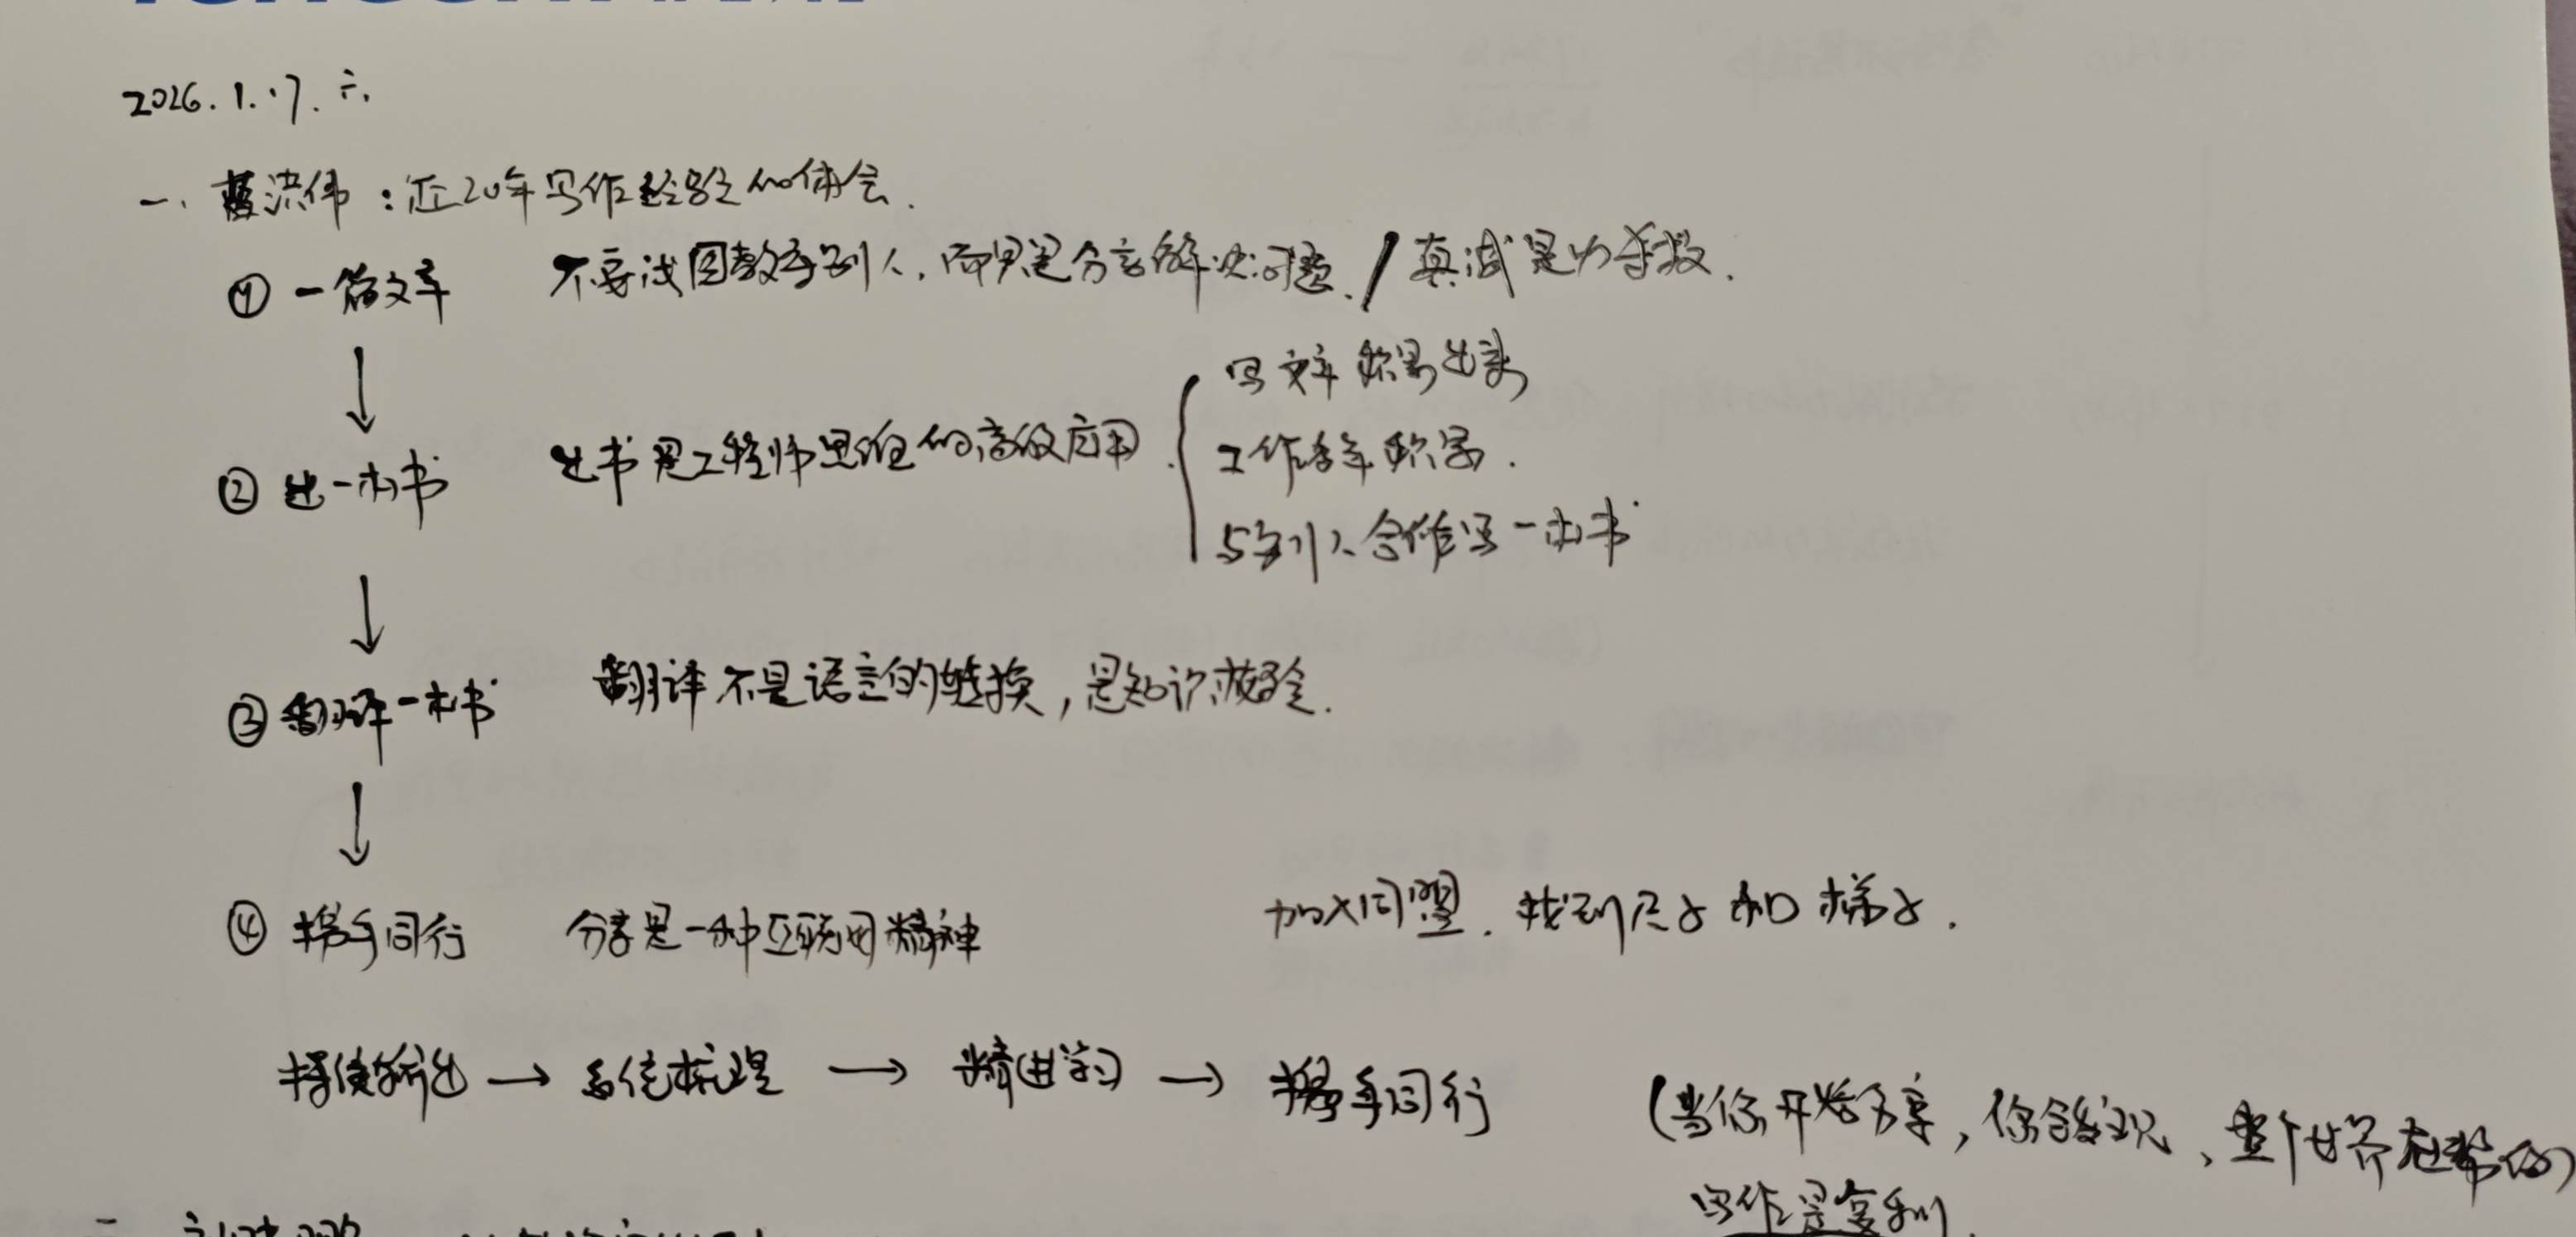 2026.1.17.六.
一. 董洪伟：近20年写作经验的体会.
① 一篇文章 不要试图教导别人，而是分享解决问题. / 真诚是必杀技.
↓
② 出一本书 出书是工程师思维的高级应用. { 写文章积累出来
工作多年积累.
与别人合作写一本书
↓
③ 翻译一本书 翻译不是语言的转换，是知识
↓
④ 携手同行 分享是一种互联网精神 加入同盟. 找到尺子和梯子.
持续输出 → 系统梳理 → 精进学习 → 携手同行 (当你开始分享，你会发现、整个世界在帮你)
写作是复利.
二